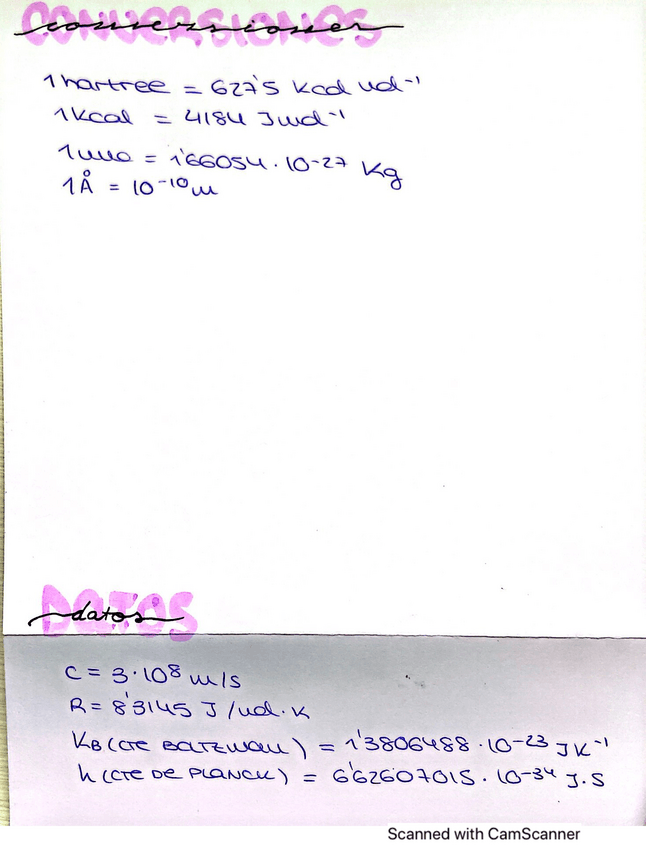 CONVERSIONES
conversiones
1 hartree = 627'5 Kcal mol⁻¹
1 Kcal = 4184 J mol⁻¹
1 uma = 1'66054 · 10⁻²⁷ Kg
1 Å = 10⁻¹⁰ m
DATOS
datos
C = 3·10⁸ m/s
R = 8'3145 J/mol·K
K_B (CTE BOLTZMAN) = 1'3806488 · 10⁻²³ J K⁻¹
h (CTE DE PLANCK) = 6'62607015 · 10⁻³⁴ J·S
Scanned with CamScanner